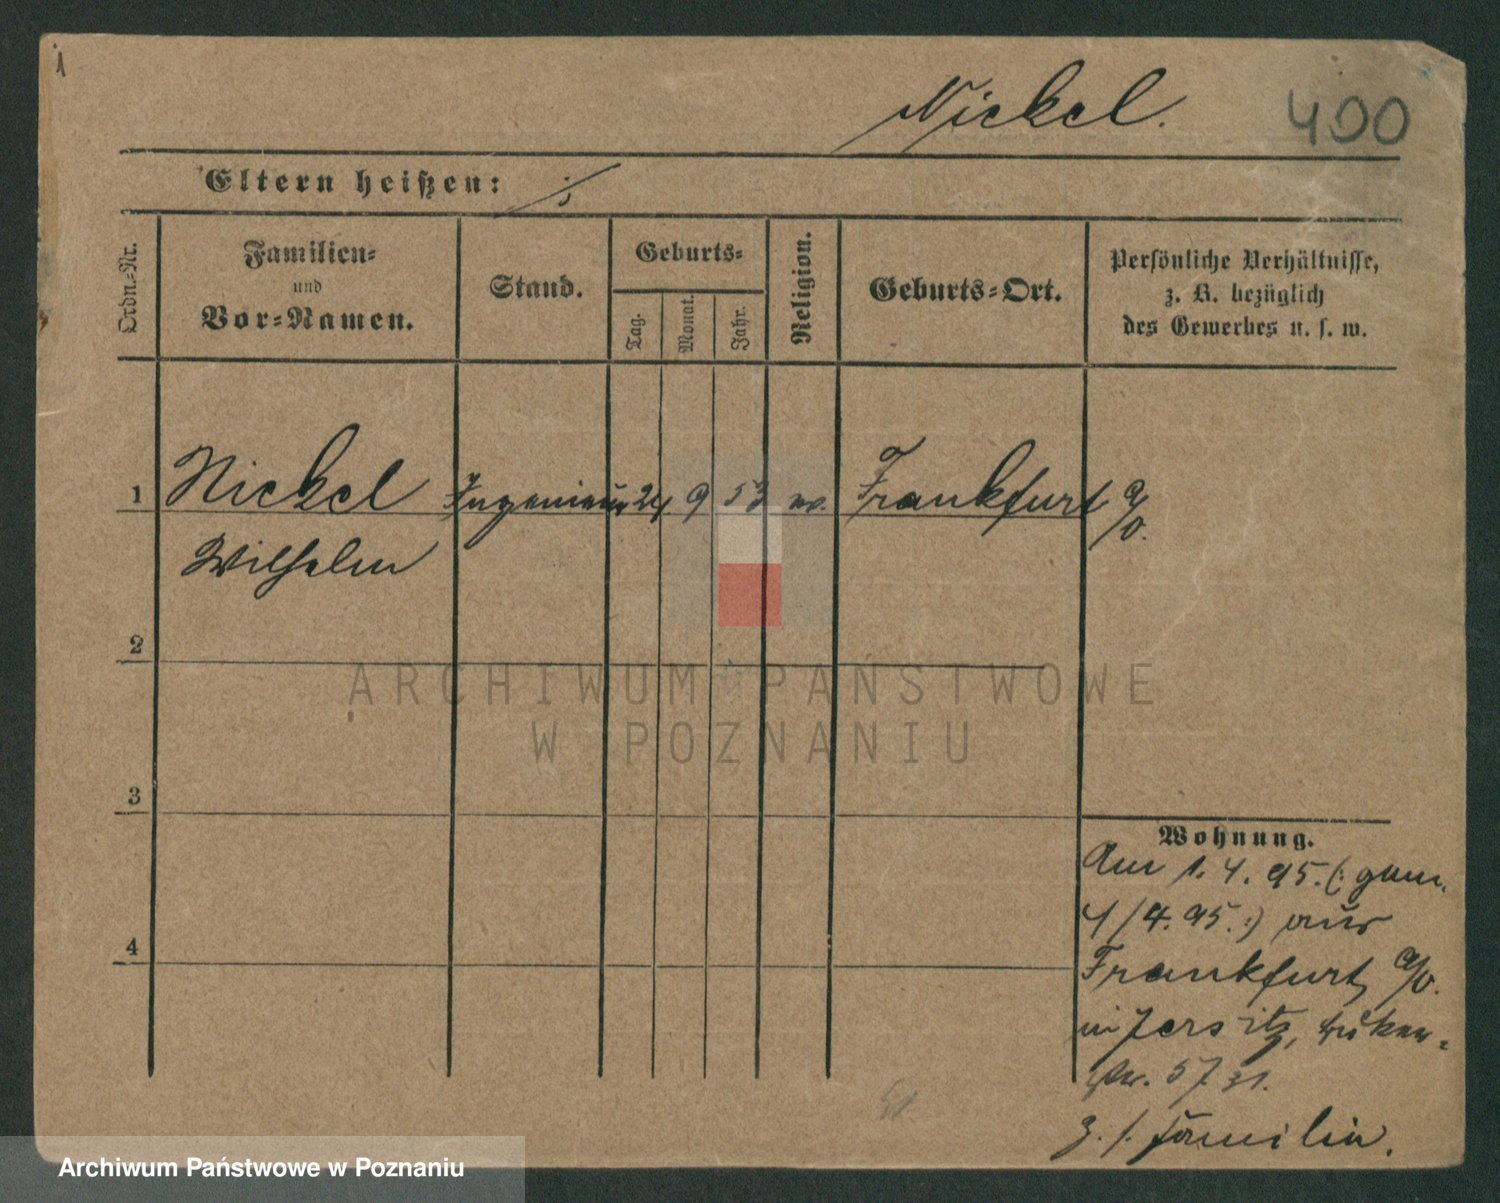 1
Nickel. 400
Eltern heißen: ./.
Ordn.-Nr.
Familien-
und
Vor-Namen.
Stand.
Geburts-
Tag.
Monat.
Jahr.
Religion.
Geburts-Ort.
Persönliche Verhältnisse,
z. B. bezüglich
des Gewerbes u. s. w.
1 Nickel Ingenieur 24 9 53 ev. Frankfurt a/O.
Wilhelm
2
3
4
Wohnung.
Am 1. 4. 95. (: gem.
4/4. 95. :) aus
Frankfurt a/O.
in Jersitz,
57
z. s. Familie.
ARCHIWUM PAŃSTWOWE
W POZNANIU
Archiwum Państwowe w Poznaniu